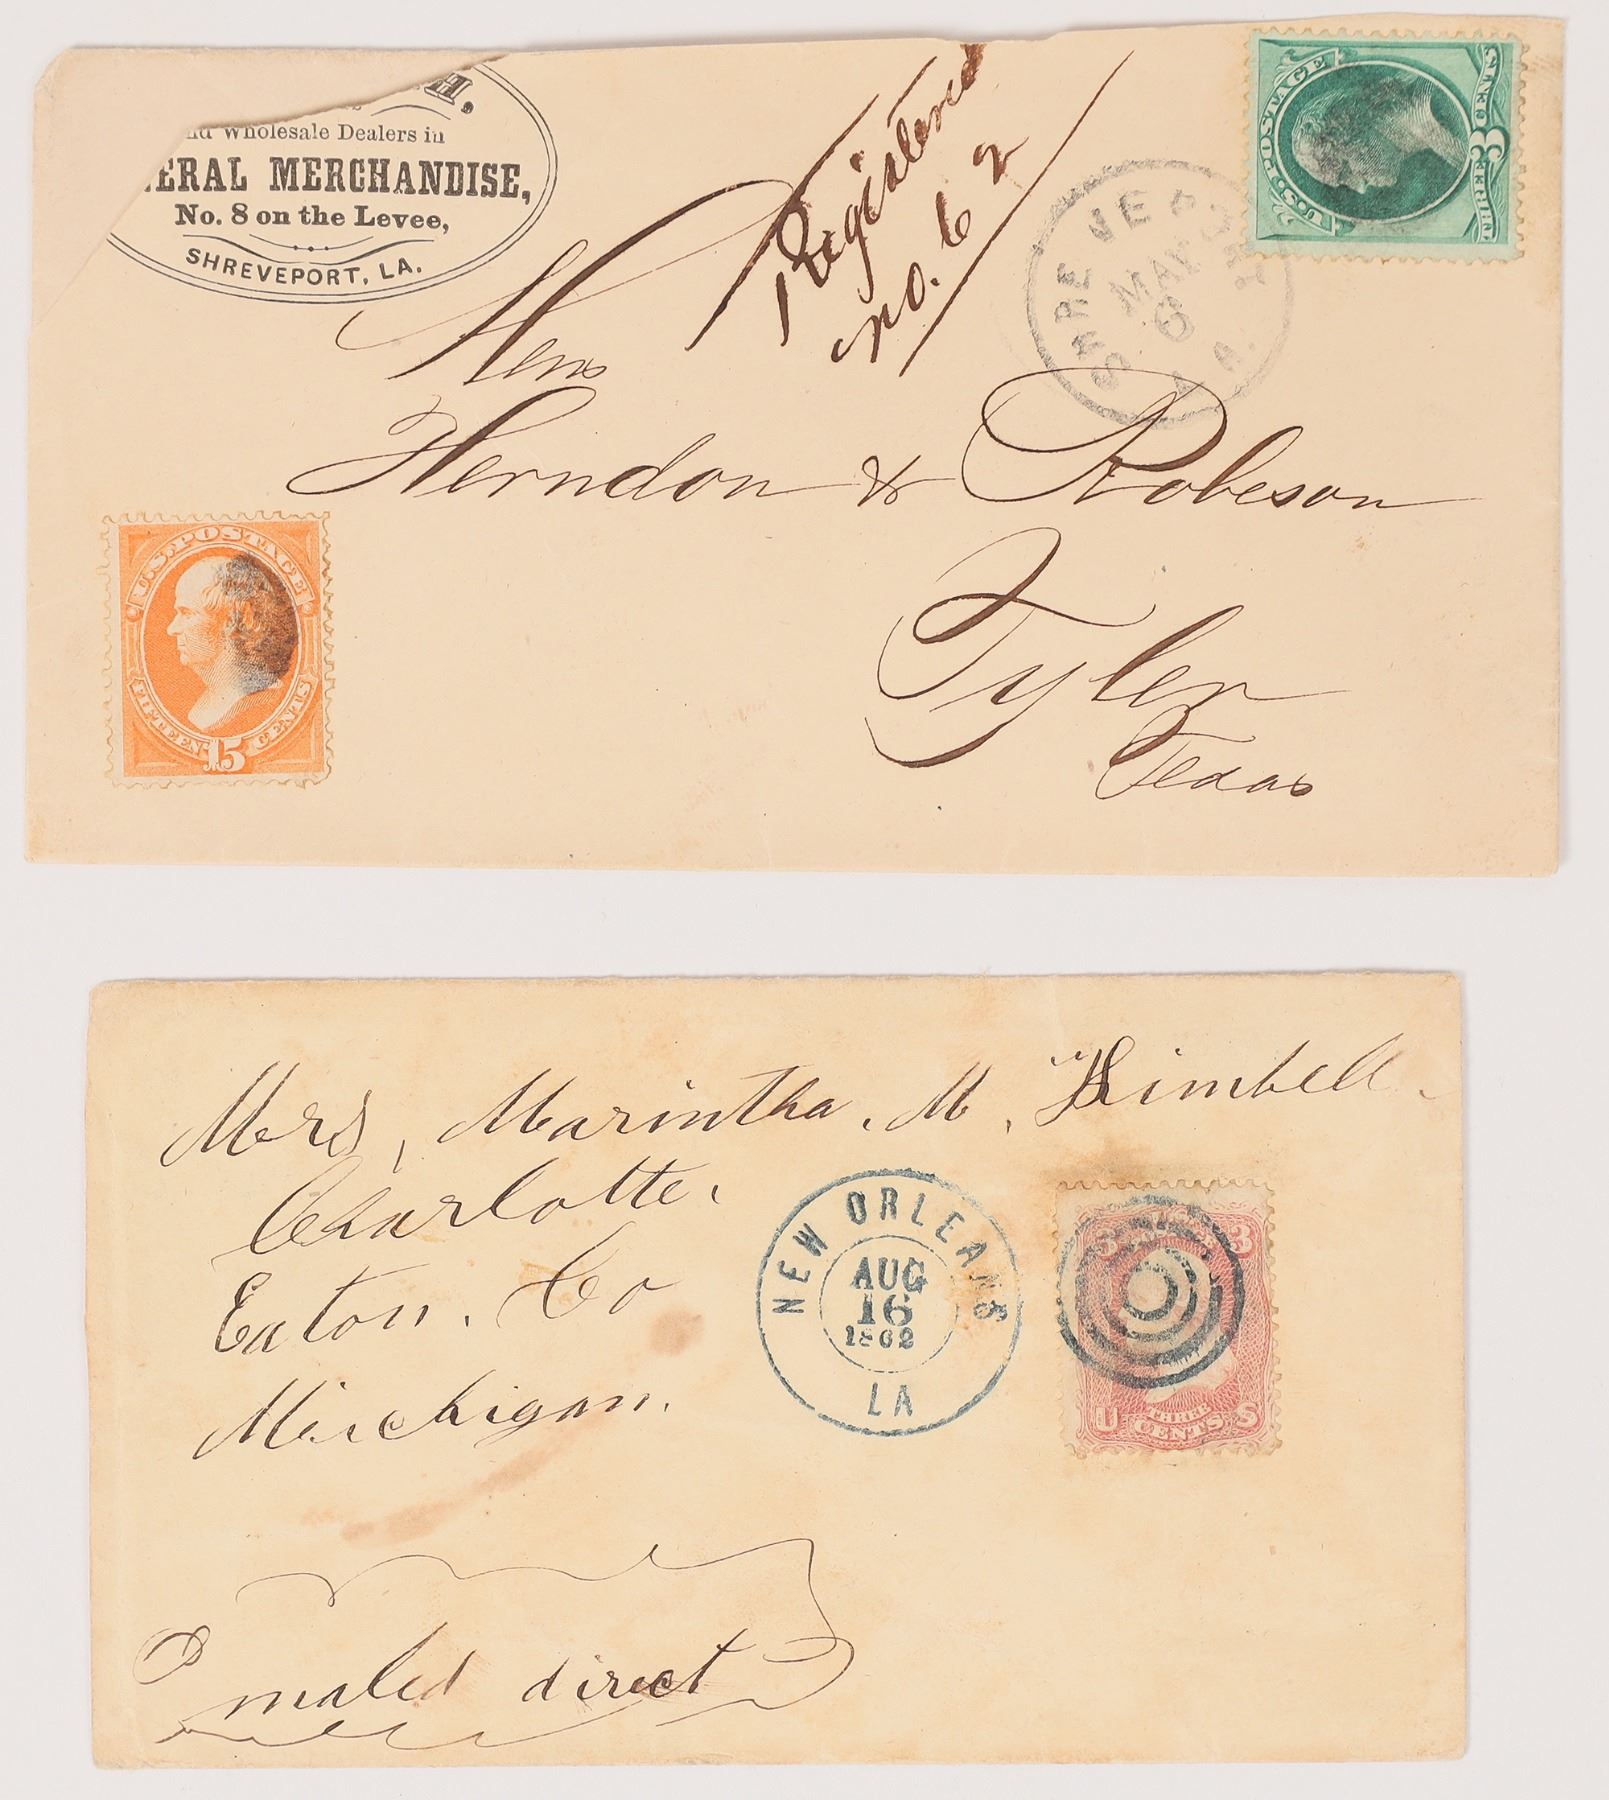 H,
Wholesale Dealers in
ERAL MERCHANDISE,
No. 8 on the Levee,
SHREVEPORT, LA.
Registered
no. 62
U.S. POSTAGE
3
SHREVEPORT
MAY
6
LA.
Mess
Herndon & Robeson
Tyler
Texas
U.S. POSTAGE
FIFTEEN 15 CENTS
Mrs, Marintha. M. Kimbell.
Charlotte.
Eaton. Co
Mirchigan.
NEW ORLEANS
AUG
16
1862
LA
3 3
U THREE S
CENTS
maled direct